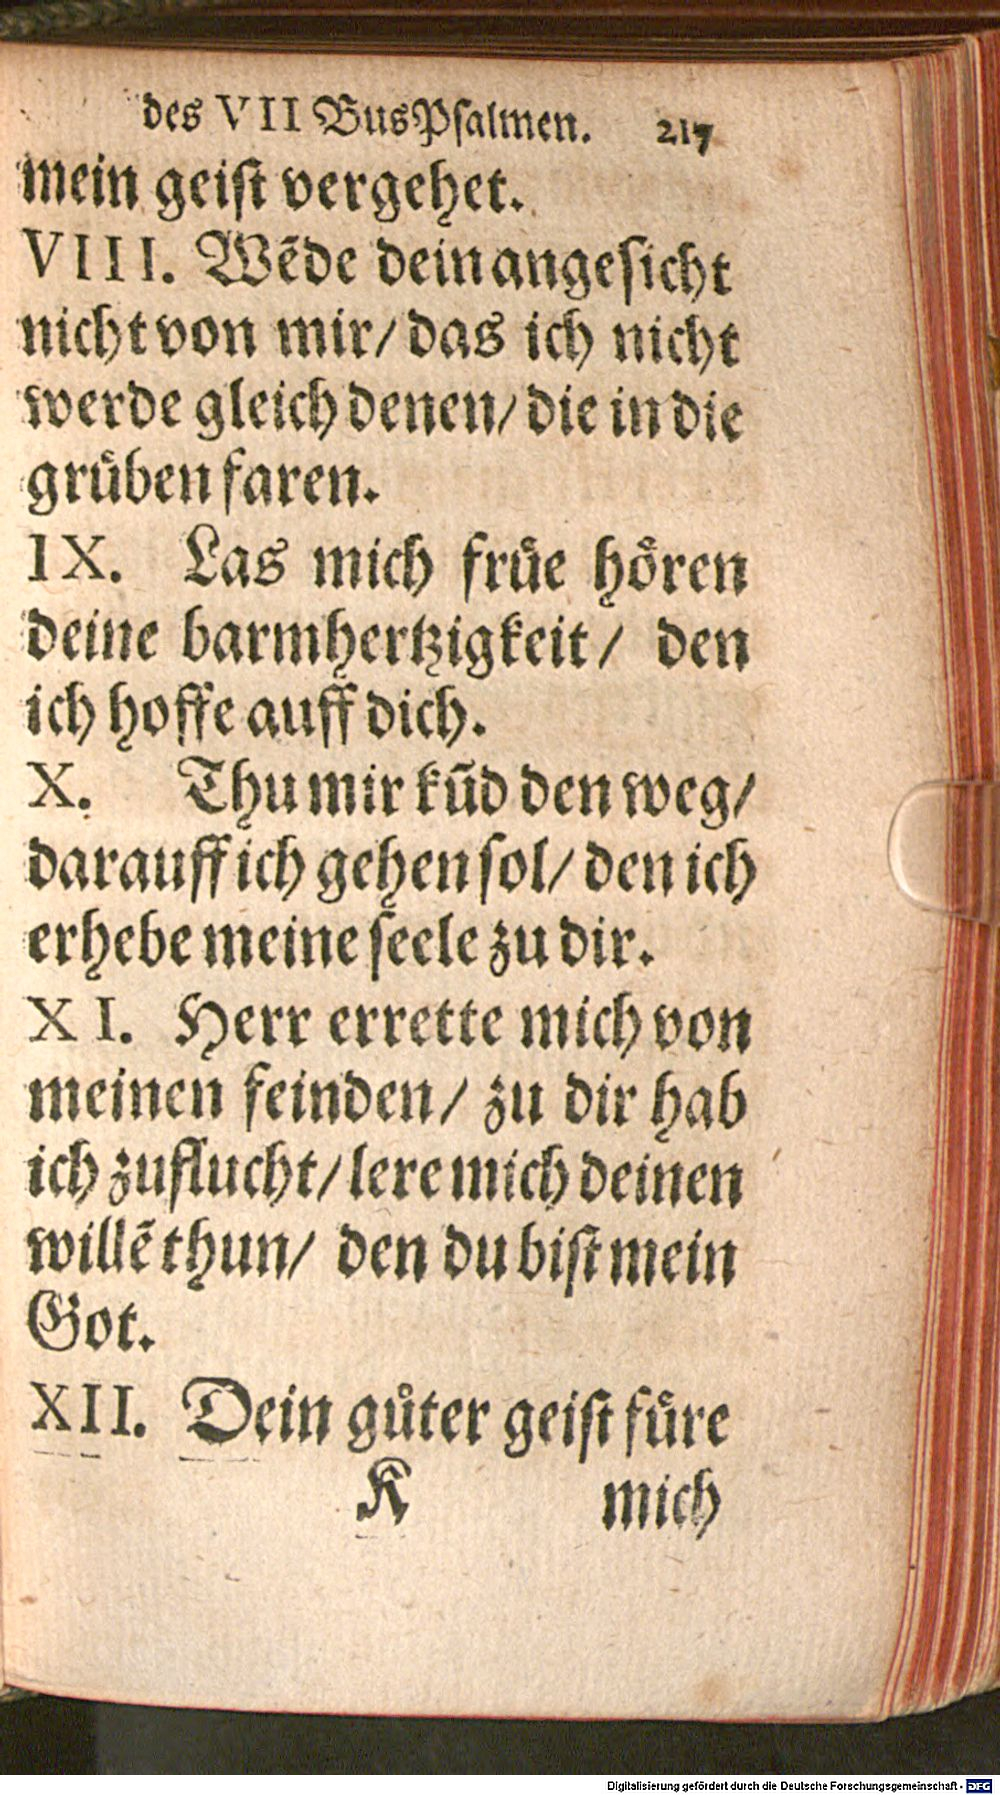 des VII BusPſalmen. 217
mein geiſt vergehet.
VIII. Wẽde dein angeſicht
nicht von mir/ das ich nicht
werde gleich denen/ die in die
gruͤben faren.
IX. Las mich fruͤe hoͤren
deine barmhertzigkeit/ den
ich hoffe auff dich.
X. Thu mir kũd den weg/
darauff ich gehen ſol/ den ich
erhebe meine ſeele zu dir.
XI. Herr errette mich von
meinen feinden/ zu dir hab
ich zuflucht/ lere mich deinen
willẽ thun/ den du biſt mein
Got.
XII. Dein guͤter geiſt fuͤre
K mich
Digitalisierung gefördert durch die Deutsche Forschungsgemeinschaft - DFG